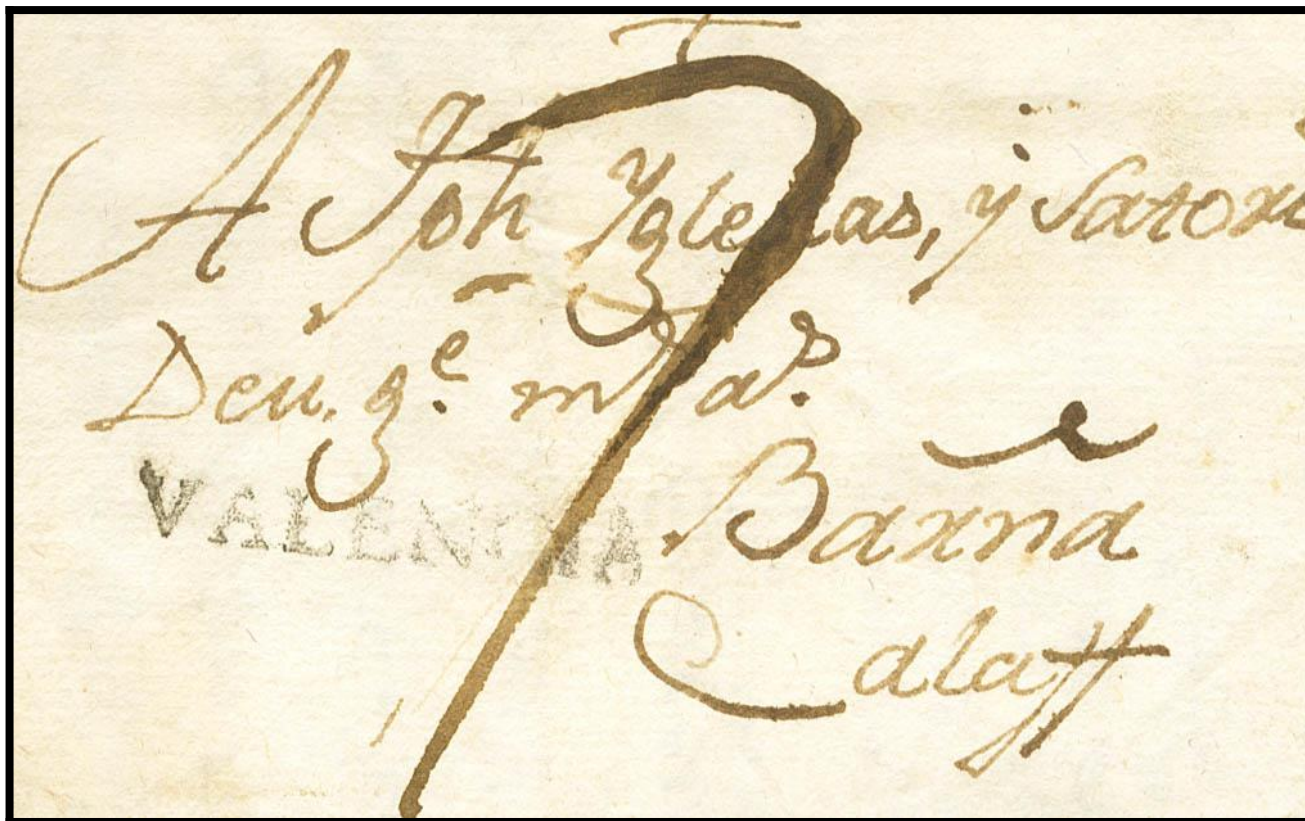 A Jph Yglesias, y Satori
Deu. g.e m.s a.s
VALENCIA
Barna
Calaff
7